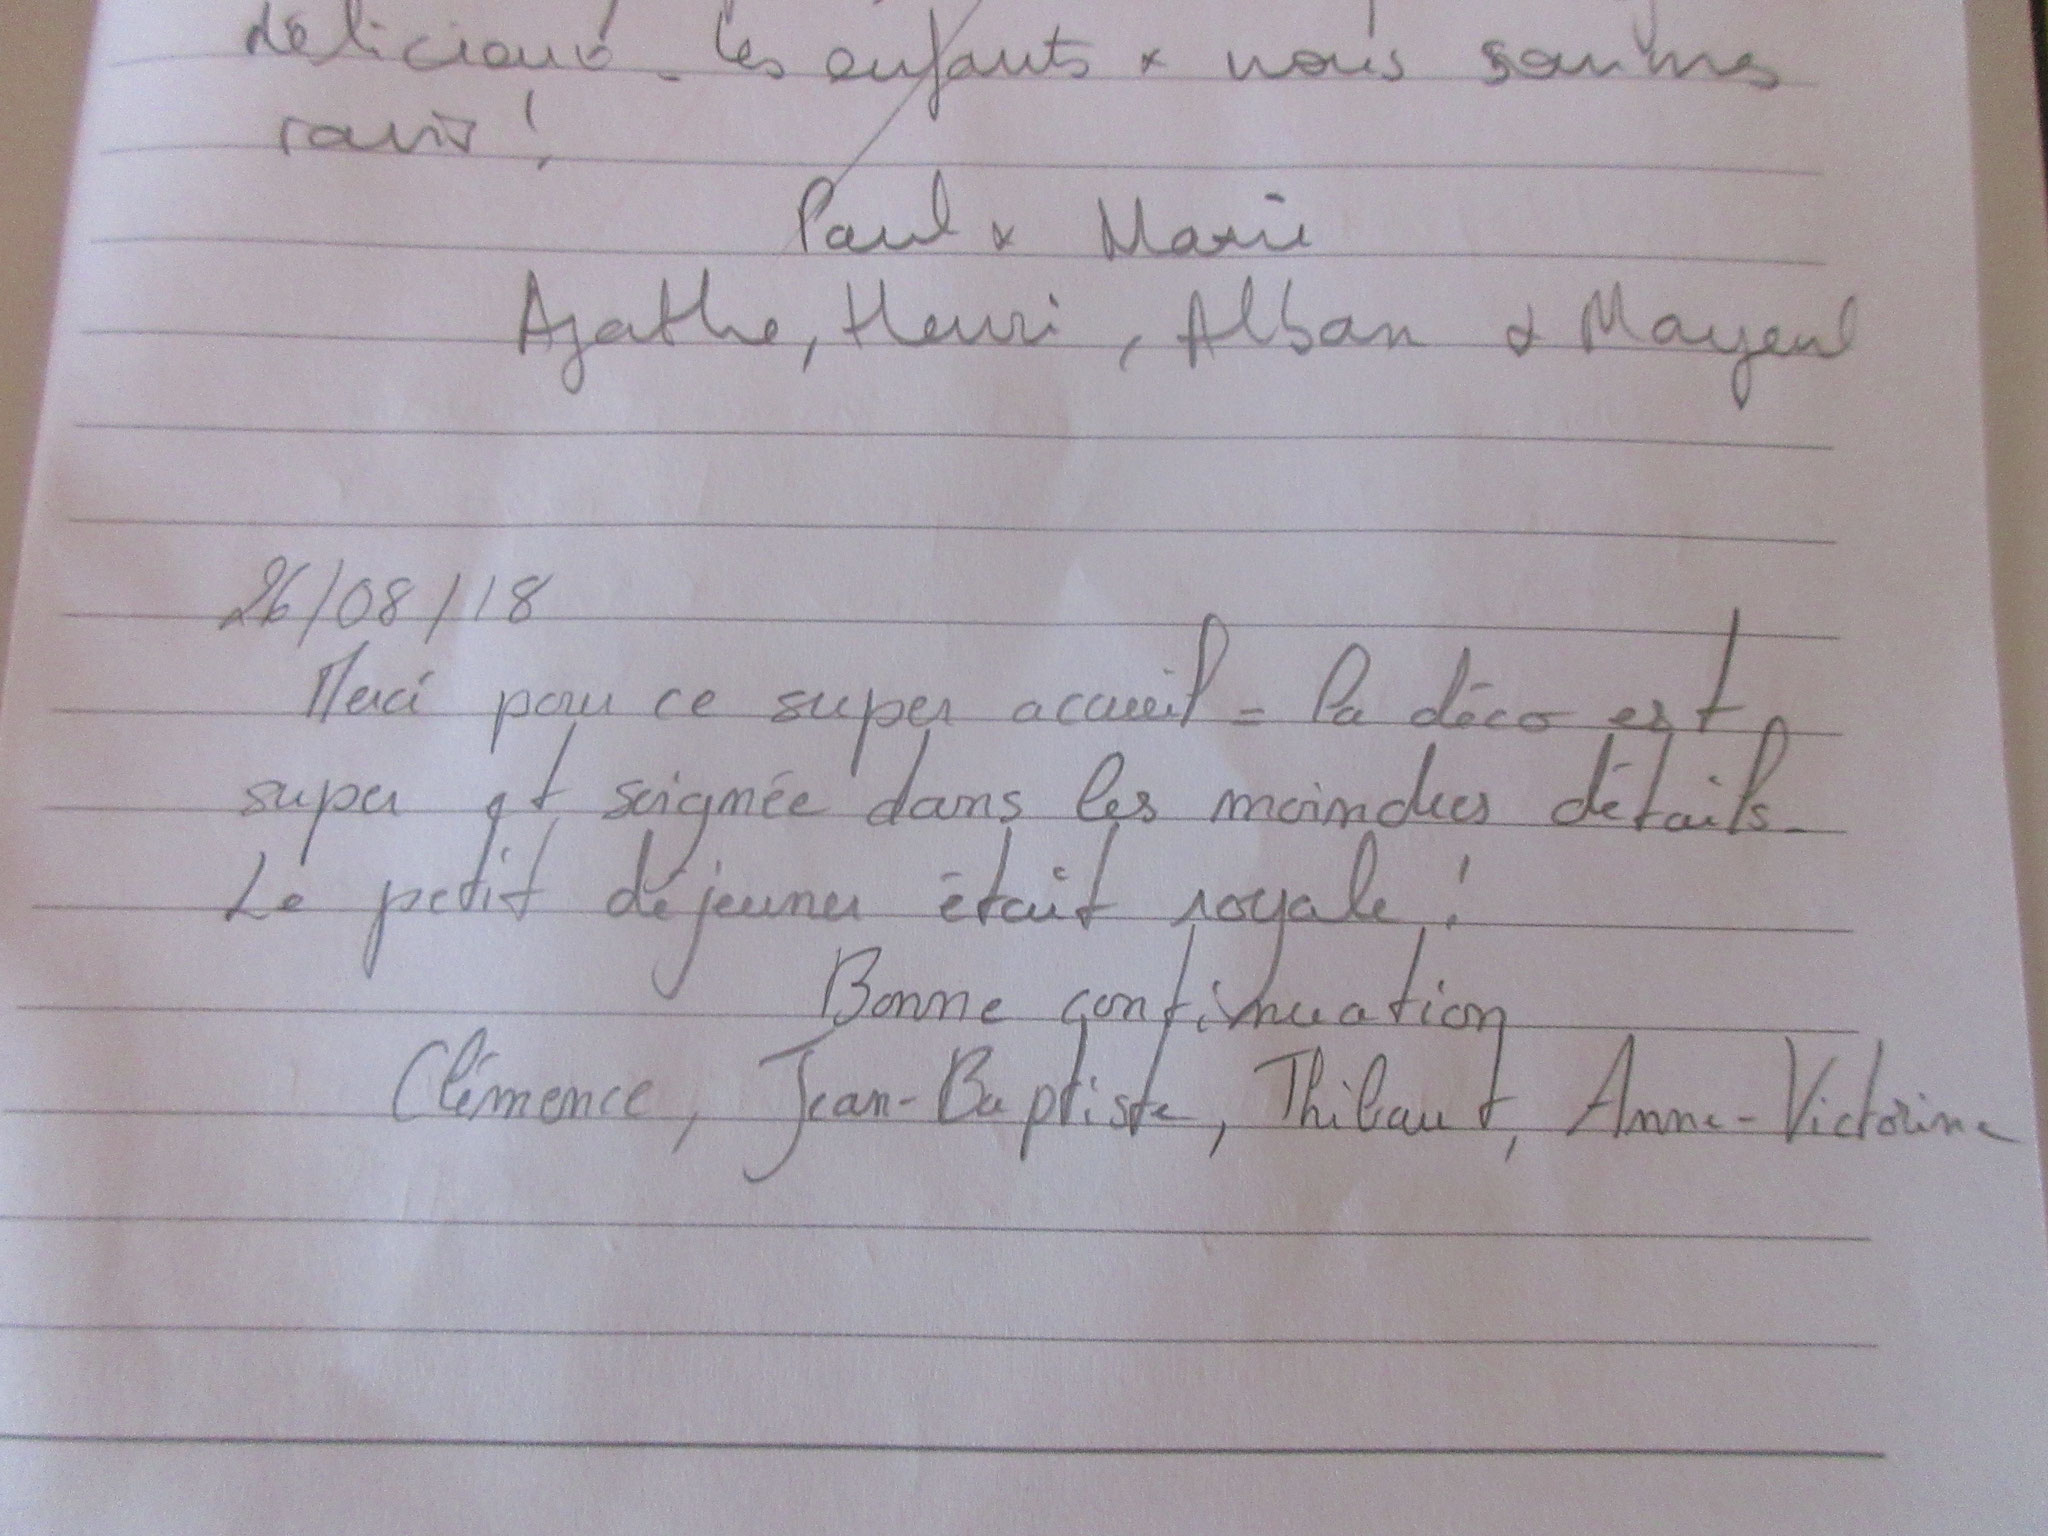 délicieux. Les enfants & nous sommes
ravis !
Paul & Marie
Agathe, Henri, Alban & Mayeul
26/08/18
Merci pour ce super accueil = la déco est
super et soignée dans les moindres détails.
Le petit déjeuner était royale !
Bonne continuation
Clémence, Jean-Baptiste, Thibaut, Anne-Victorine